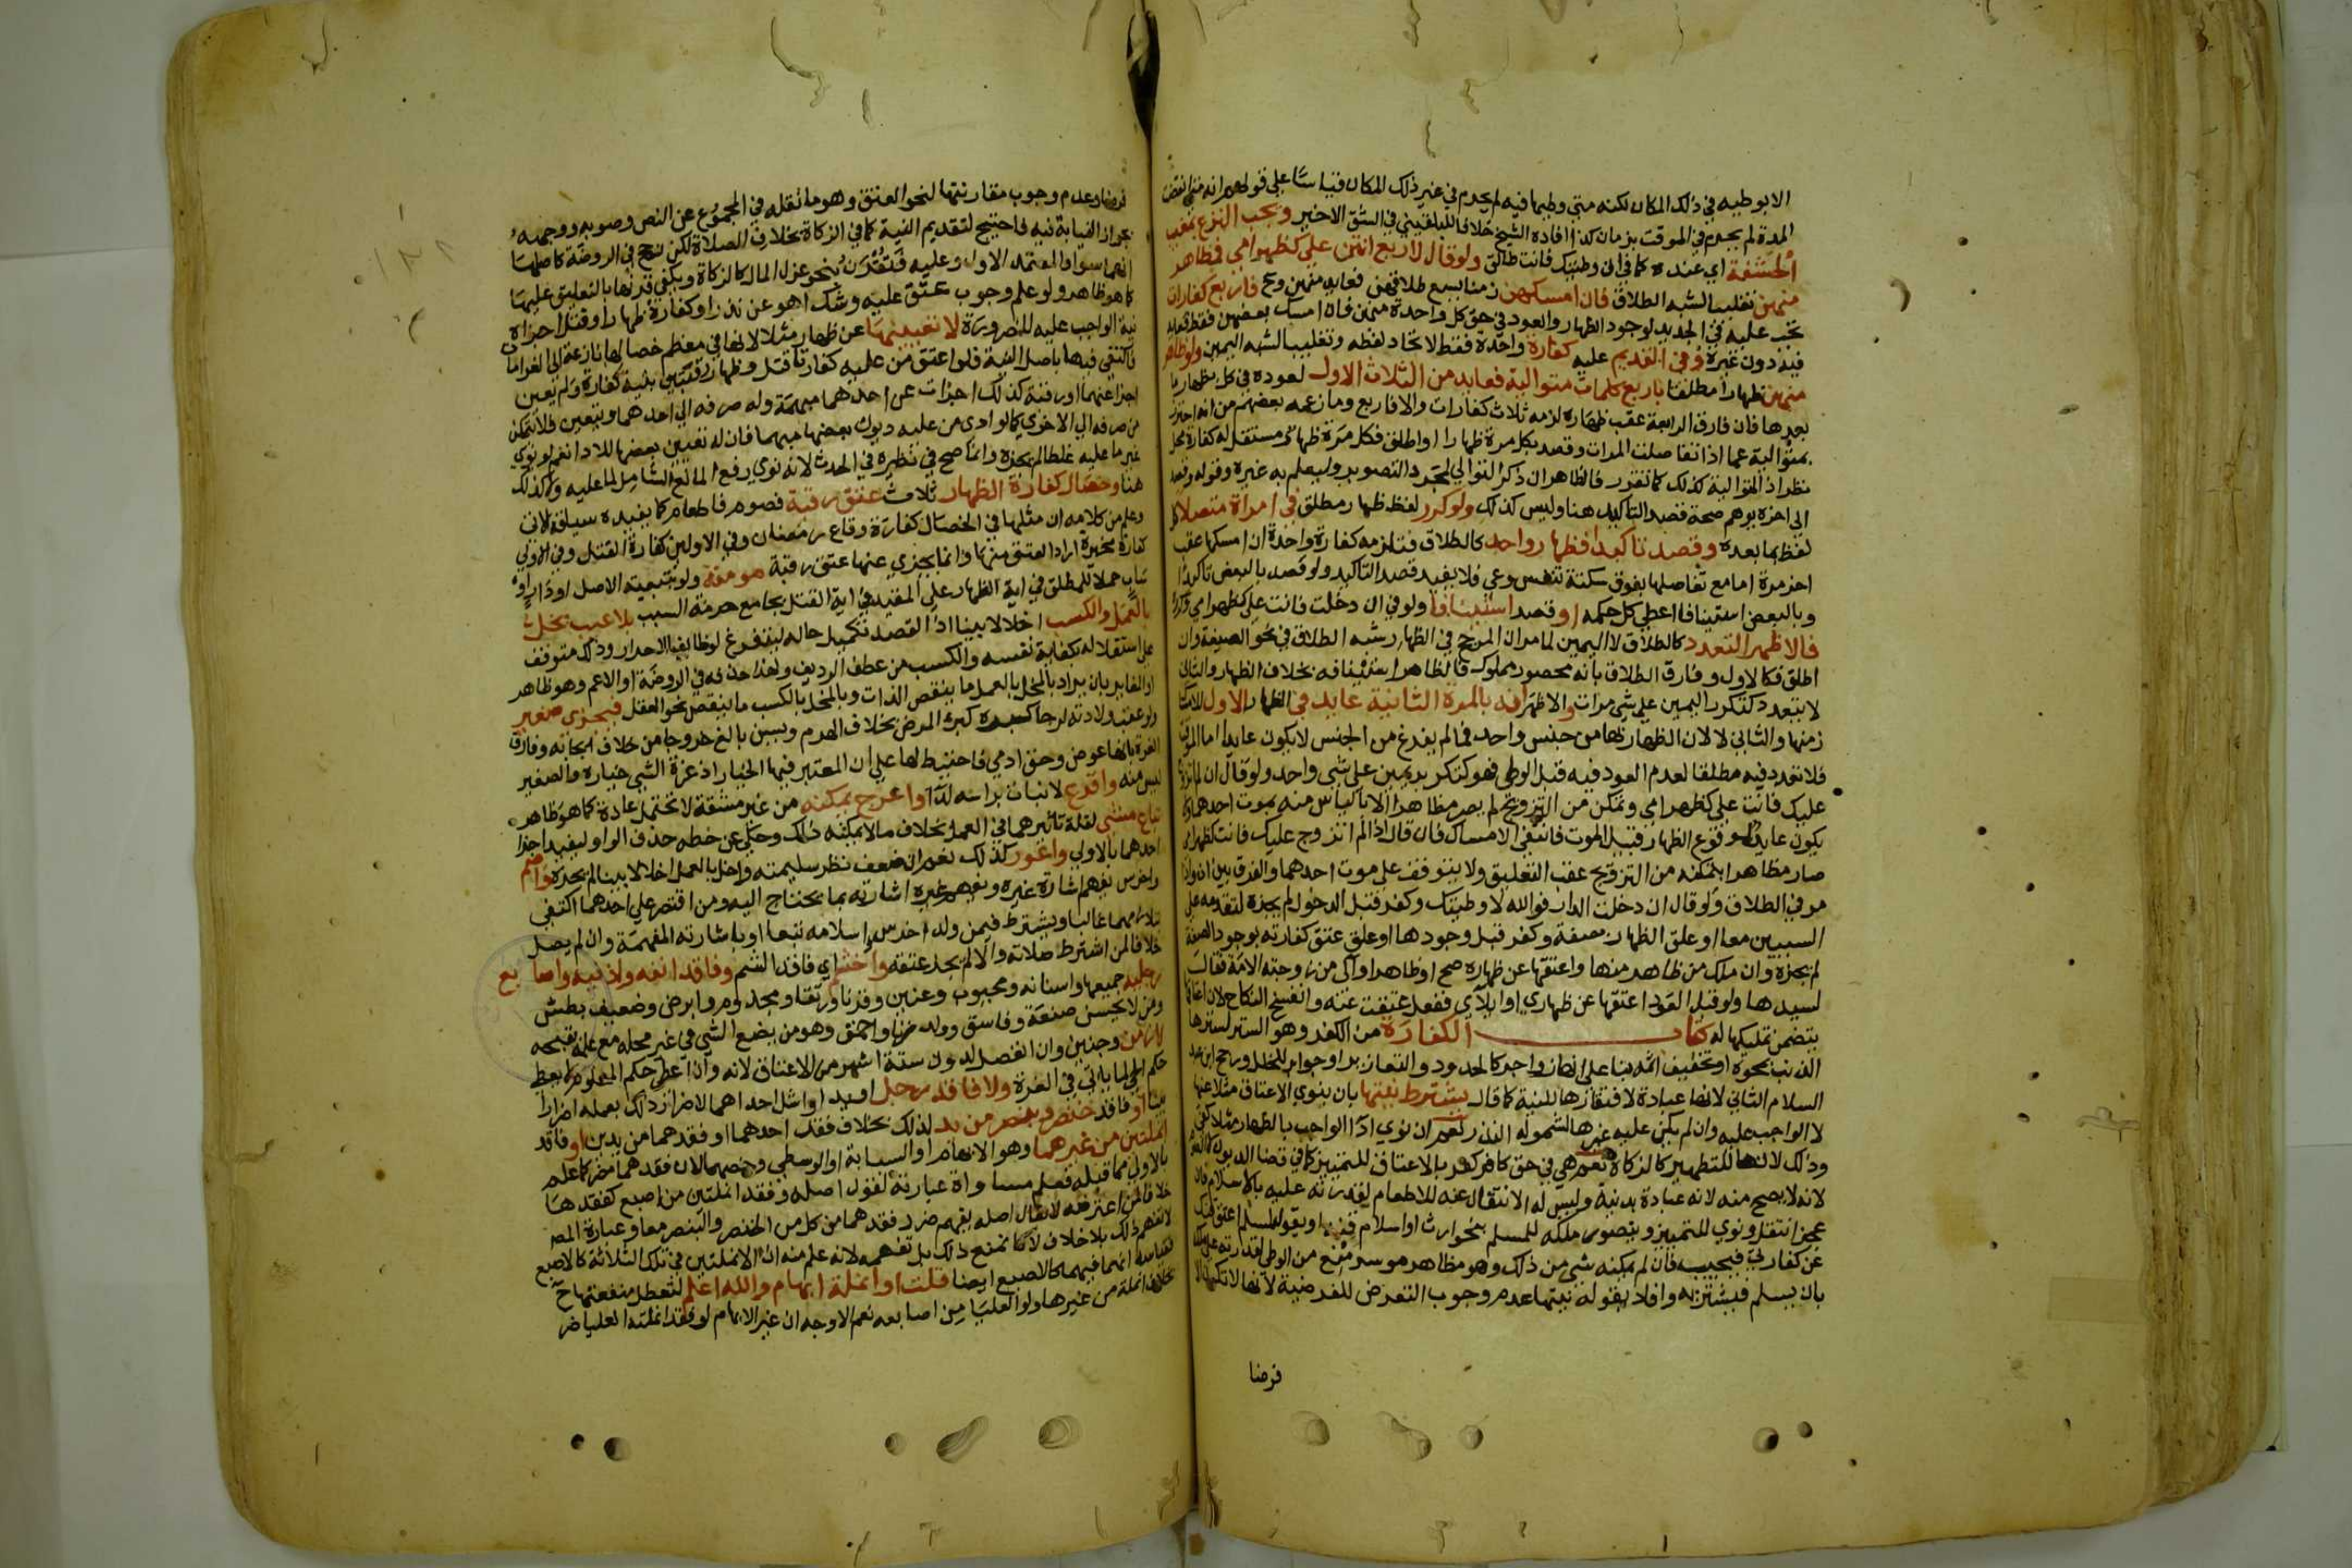 الا بوطيه في ذلك المكان لكنه متي وطيها فيه لم يحرم في غير ذلك المكان قياسا علي قولهم انه متي انقضت
المدة لم يحرم في الموقت بزمان كذا افاده الشيخ خلافا للبلقيني في الشق الاخير ويجب النزع بمغيب
الحشفة اي عنده كما في ان وطيتك فانت طالق ولو قال لاربع انتن علي كظهر امي فظاهر
منهن تغليبا لشبه الطلاق فان امسكهن زمنا يسع طلاقهن فعايد منهن وح فاربع كفارات
تجب عليه في الجديد لوجود الظهار والعود في حق كل واحدة منهن فان امسك بعضهن فقط فعايد
فيه دون غيره وفي القديم عليه كفارة واحدة فقط لاتحاد لفظه وتغليبا لشبه اليمين ولو ظاهر
منهن ظهارا مطلقا باربع كلمات متوالية فعايد من الثلاث الاول لعوده في كل بظهار ما
بعدها فان فارق الرابعة عقب ظهاره لزمه ثلاث كفارات والا فاربع وما زعمه بعضهم من انه احترز
بمتوالية عما اذا تفاصلت المرات وقصد بكل مرة ظهارا او اطلق فكل مرة ظهار مستقل له كفارة محل
نظر اذ المتوالية كذلك كما تقرر فالظاهر ان ذكر التوالي لمجرد التصوير وليعلم به غيره وقوله وقصد
الي اخره يوهم صحة قصد التاكيد هنا وليس كذلك ولو كرر لفظ ظهار مطلق في امراة متصلا كل
لفظ بما بعده وقصد تاكيدا فظهار واحد كالطلاق فتلزمه كفارة واحدة ان امسكها عقب
اخر مرة اما مع تفاصلها بفوق سكتة تنفس وعي فلا يفيد قصد التاكيد ولو قصد بالبعض تاكيدا
وبالبعض استينافا اعطي كل حكمه او قصد استينافا ولو في ان دخلت فانت علي كظهر امي وكرره
فالاظهر التعدد كالطلاق لا اليمين لما مر ان المرجح في الظهار شبه الطلاق في نحو الصيغة وان
اطلق فكالاول وفارق الطلاق بانه محصور مملوك فالظاهر استينافه بخلاف الظهار والثاني
لا يتعدد كتكرر اليمين علي شي مرات والاظهر انه بالمرة الثانية عايد في الظهار الاول للامساك
زمنها والثاني لا لان الظهار بهما من جنس واحد فما لم يفرغ من الجنس لا يكون عايدا اما الموقت
فلا تعدد فيه مطلقا لعدم العود فيه قبل الوطي فهو كتكرير يمين علي شي واحد ولو قال ان لم اتزوج
عليك فانت علي كظهر امي وتمكن من التزويج لم يصر مظاهرا الا بالياس منه بموت احدهما ولا
يكون عايدا لوقوع الظهار قبيل الموت فانتفي الامساك فان قال اذا لم اتزوج عليك فانت كظهر امي
صار مظاهرا بتمكنه من التزويج عقب التعليق ولا يتوقف علي موت احدهما والفرق بين ان واذا
مر في الطلاق ولو قال ان دخلت الدار فوالله لا وطيتك وكفر قبل الدخول لم يجزه لتقدمه علي
السببين معا او علق الظهار بصفة وكفر قبل وجودها او علق عتق كفارته بوجود الصفة
لم يجزه وان ملك من ظاهر منها واعتقها عن ظهاره صح او ظاهر او آلي من زوجته الامة فقال
لسيدها ولو قبل العود اعتقها عن ظهاري او ايلآي ففعل عتقت عنه وانفسخ النكاح لان اعتاقها
يتضمن تمليكها له كتاب الكفارة من الكفر وهو الستر لسترها
الذنب بمحوه او تخفيف اثمه بنا علي انها زواجر كالحدود والتعازير او جوابر للخلل ورجح ابن عبد
السلام الثاني لانها عبادة لافتقارها للنية كما قال يشترط نيتها بان ينوي الاعتاق مثلا عنها
لا الواجب عليه وان لم يكن عليه غيرها لشموله النذر نعم ان نوي ادا الواجب بالظهار مثلا كفي
وذلك لانها للتطهير كالزكاة نعم هي في حق كافر كفر بالاعتاق للتمييز كما في قضا الديون لا الصوم
لانه لا يصح منه لانه عبادة بدنية وليس له الانتقال عنه للاطعام لقدرته عليه بالاسلام فان
عجز انتقل ونوي للتمييز ويتصور ملكه للمسلم بنحو ارث او اسلام قنه او يقول لمسلم اعتق قنك
عن كفارتي فيجيبه فان لم يمكنه شي من ذلك وهو مظاهر موسر منع من الوطي لقدرته علي ملكه
بان يسلم فيشتريه وافاد بقوله نيتها عدم وجوب التعرض للفرضية لانها لا تكون الا
فرضا
فرضا وعدم وجوب مقارنتها لنحو العتق وهو ما نقله في المجموع عن النص وصوبه ووجهه
بجواز النيابة فيه فاحتيج لتقديم النية كما في الزكاة بخلاف الصلاة لكن رجح في الروضة كاصلها
انهما سوا والمعتمد الاول وعليه فتقرن بنحو عزل المال كالزكاة ويكفي قرنها بالتعليق عليهما
كما هو ظاهر ولو علم وجوب عتق عليه وشك اهو عن نذر او كفارة ظهار او قتل اجزاه
نية الواجب عليه للضرورة لا تعيينها عن ظهار مثلا لانها في معظم خصالها نازعة الي الغرامات
فاكتفي فيها باصل النية فلو اعتق من عليه كفارتا قتل وظهار رقبتين بنية كفارة ولم يعين
اجزا عنهما او رقبة كذلك اجزات عن احدهما مبهمة وله صرفه الي احدهما ويتعين فلا يتمكن
من صرفه الي الاخري كما لو ادي من عليه ديون بعضها مبهما فان له تعيين بعضها للادا نعم لو نوي
غير ما عليه غلطا لم يجزه وانما صح في نظيره في الحدث لانه نوي رفع المانع الشامل لما عليه ولا كذلك
هنا وخصال كفارة الظهار ثلاث عتق رقبة فصوم فاطعام كما يفيده سياقه لان
وعلم من كلامه ان مثلها في الخصال كفارة وقاع رمضان وفي الاولين كفارة القتل وفي الاولي
كفارة مخيرة اراد العتق منها وانما يجزي عنها عتق رقبة مومنة ولو بتبعية الاصل او دار او
ساب حملا للمطلق في اية الظهار علي المقيد في اية القتل بجامع حرمة السبب بلا عيب يخل
بالعمل والكسب اخلالا بينا اذ القصد تكميل حاله ليتفرغ لوظايف الاحرار وذلك متوقف
علي استقلاله بكفاية نفسه والكسب من عطف الرديف ولهذا حذفه في الروضة او الاعم وهو ظاهر
او المغاير بان يراد بالمخل بالعمل ما ينقص الذات وبالمخل بالكسب ما ينقص نحو العقل فيجزي صغير
ولو عقب ولادته لرجا كبره كبرء المرض بخلاف الهرم ويسن بالغ خروجا من خلاف ايجابه وفارق
الغرة بانها عوض وحق ادمي فاحتيط لها علي ان المعتبر فيها الخيار اذ غرة الشي خياره والصغير
ليس منه واقرع لا نبات براسه لدا او اعرج يمكنه من غير مشقة لا تحتمل عادة كما هو ظاهر
تباع مشي لقلة تاثيرهما في العمل بخلاف ما لا يمكنه ذلك وحكي عن خطه حذف الواو ليفيد اجزا
احدهما بالاولي واعور كذلك نعم ان ضعف نظر سليمته واخل بالعمل اخلالا بينا لم يجزه واصم
واخرس يفهم اشارة غيره ويفهم غيره اشارته بما يحتاج اليه ومن اقتصر علي احدهما اكتفي
بتلازمهما غالبا ويشترط فيمن ولد اخرس اسلامه تبعا او باشارته المفهمة وان لم يصل
خلافا لمن اشترط صلاته والا لم يجز عتقه واخشم اي فاقد الشم وفاقد انفه واذنيه واصابع
رجليه جميعها واسنانه ومجبوب وعنين وقرنا ورتقا ومجذوم وابرص وضعيف بطش
ومن لا يحسن صنعة وفاسق وولد زنا واحمق وهو من يضع الشي في غير محله مع علمه بقبحه
لا زمن وجنين وان انفصل لدون ستة اشهر من الاعتاق لانه وان اعطي حكم المعلوم لا يعطي
حكم الحي لما ياتي في الغرة ولا فاقد رجل او يد او اشل احداهما لاضرار ذلك بعمله اضرارا
بينا او فاقد خنصر وبنصر من يد لذلك بخلاف فقد احدهما او فقدهما من يدين او فاقد
انملتين من غيرهما وهو الابهام او السبابة او الوسطي وخصهما لان فقدهما مضر كما علم
بالاولي مما قبله فعلم مساواة عبارته لقول اصله وفقد انملتين من اصبع كفقدها
خلافا لمن اعترضه لا يقال اصله يفهم ضرر فقدهما من كل من الخنصر والبنصر معا وعبارة المص
لا تفهم ذلك بلا خلاف لانا نمنع ذلك بل تفهمه لانه علم منه ان الانملتين في تلك الثلاثة كالاصبع
فقياسه انهما فيهما كالاصبع ايضا قلت او انملة ابهام والله اعلم لتعطل منفعتها ح
بخلاف انملة من غيرها ولو العليا من اصابعه نعم الاوجه ان غير الابهام لو فقد انملته العليا ضر